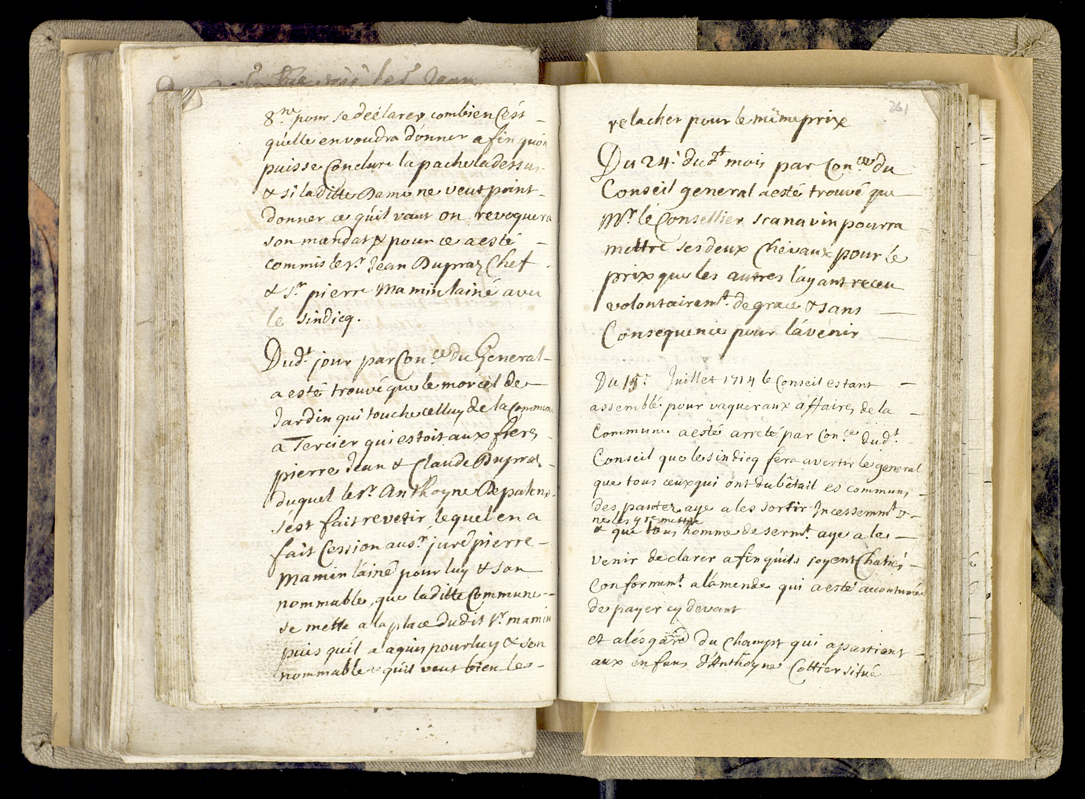 8.ne pour se declarer combien C'ést
qu'elle en voudra donner afin qu'on
puisse Conclure la pache la dessus
& si la ditte Dame ne veut point
donner ce qu'il vaut on revoquera
son mandat & pour ce a esté
commis le Sr. Jean Dupraz Chef
& Sr. pierre Mamin lainé avec
le sindicq.
Dudt. jour par Conce. du General
a esté trouvé que le morcel de
Jardin qui touche celluy de la Commune
a Tercier qui estoit aux freres
pierre Jean & Claude Dupraz
duquel le Sr. Anthoyne Depalens
s'est fait revetir lequel en a
fait Cession au Sr. juré pierre
Mamin lainé pour luy & son
nommable, que laditte Commune
se mette a la place dudit Sr. mamin
puis quil a aquis pour luy & son
nommable & quil veut bien les
261
relacher pour le même prix
Du 24e. dudt. mois par Conce. du
Conseil general a esté trouvé que
Mr. le Consellier Scanavin pourra
mettre ses deux Chevaux pour le
prix que les autres l'ayant receu
volontairemt. de grace & sans
Consequence pour lávenir
Du 15e. Juillet 1714 le Conseil estant
assemblé pour vaquer aux affaires de la
Commune a esté arreté par Conce. dudt.
Conseil que le sindicq fera avertir le general
que tous ceux qui ont du bétail es communs
des pautez aye a les sortir Incessemmt. &
ne les y remettre
& que tous homme de sermt. aye a le
venir declarer afin quils soyent Chatiés
Conformmt. a lamende qui a esté accoutumée
de payer cy devant
et a lésgard du Champt qui apartient
aux enfans d'Anthoyne Cottier situé